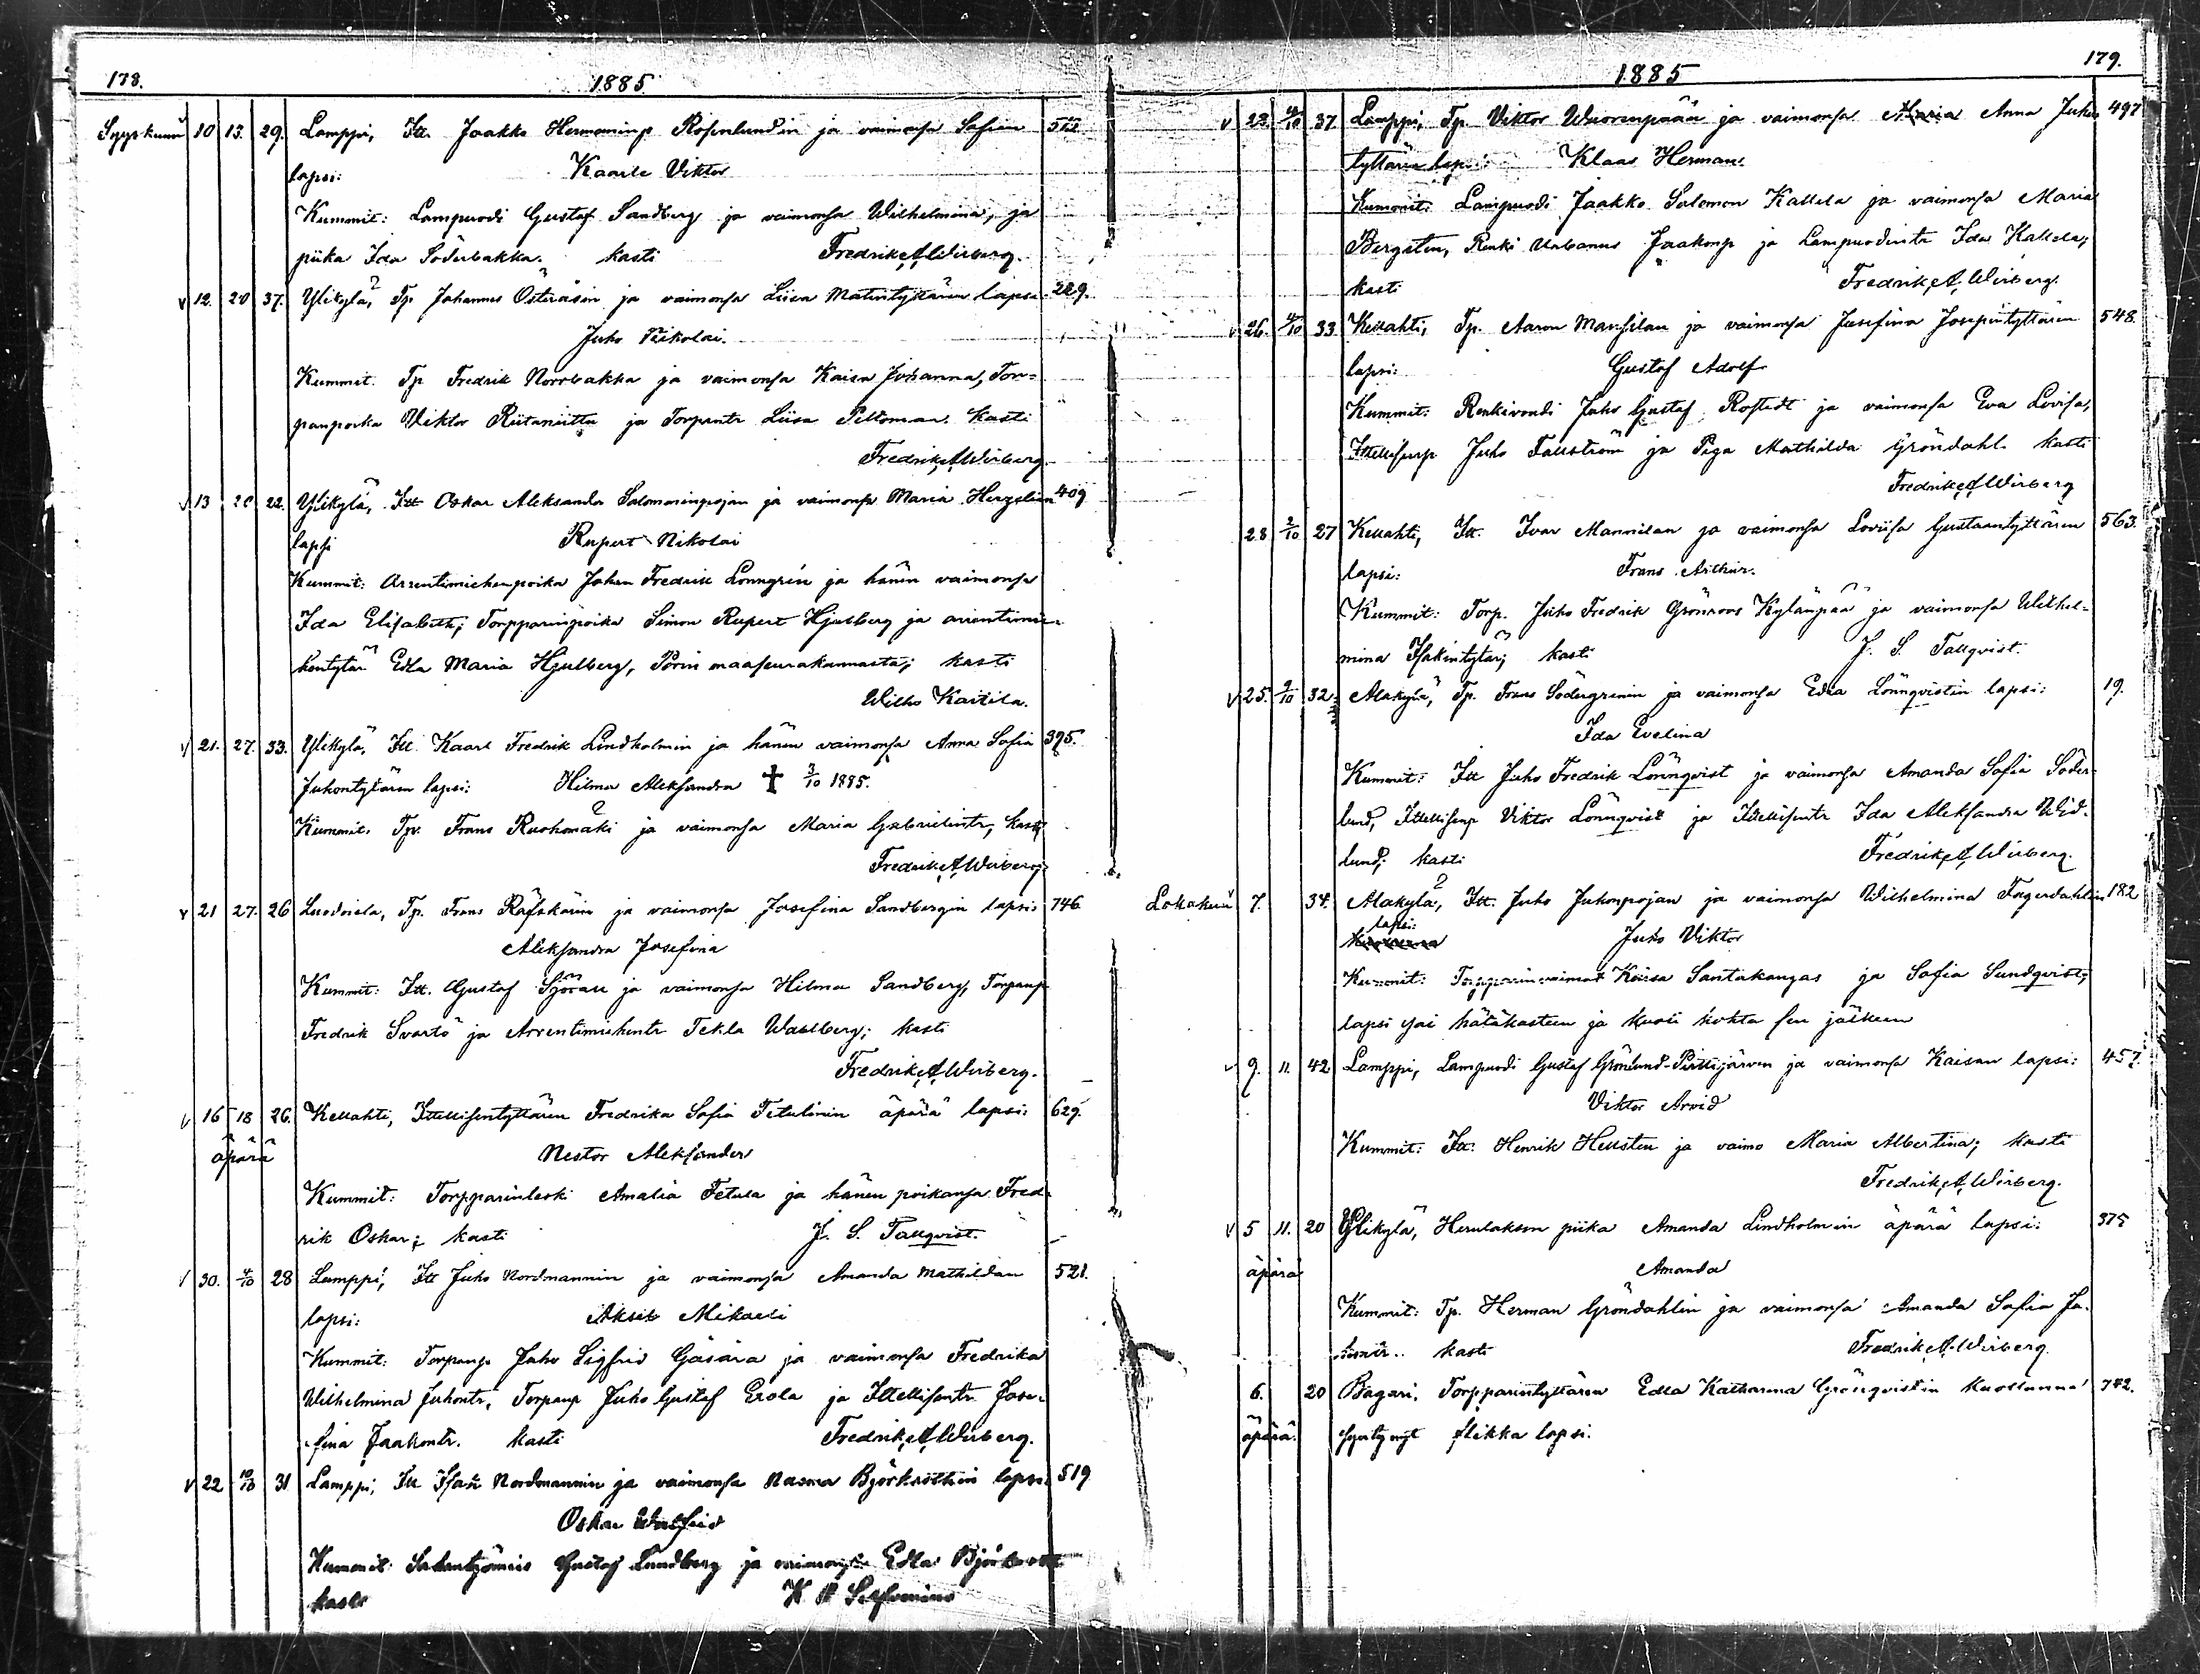 178.
1885
Syyskuu 10 13. 29. Lamppi, Itt. Jaakko Hermaninp Rosenlundin ja vaimonsa Sofian
lapsi: Kaarle Viktor
Kummit: Lampuodi Gustaf Sandberg ja vaimonsa Wilhelmina, ja
piika Ida Söderbakka. kasti Fredrik A Wirberg.
v 12. 20 37. Ylikylä, Tp Johannes Österåsin ja vaimonsa Liisa Matintyttären lapsi 229.
Juho Nikolai.
Kummit. Tp Fredrik Norrbakka ja vaimonsa Kaisa Johanna, Tor=
panpoika Viktor Riitaniittu ja Torpantr Liisa Peltoman. kasti
Fredrik A Wirberg.
v 13 20 22. Ylikylä, Itt Oskar Aleksander Salomoninpojan ja vaimonsa Maria 409
lapsi Rupert Nikolai
Kummit: Arrentimiehenpoika Johan Fredrik Lönngrén ja hänen vaimonsa
Ida Elisabeth; Torpparinpoika Simon Rupert Hjulberg ja arrentimie-
hentytär Edla Maria Hjulberg, Porin maaseurakunnasta; kasti
Wilho Kaitila.
v 21. 27. 33. Ylikylä, Itt. Kaarl Fredrik Lindholmin ja hänen vaimonsa Anna Sofia 395.
Juhontyttären lapsi: Hilma Aleksandra † 3/10 1885.
Kummit. Tp. Frans Ruohomäki ja vaimonsa Maria Gabrielintr, kasti
Fredrik A Wirberg.
v 21 27. 26 Luodoisla, Tp. Frans Räfskärin ja vaimonsa Josefina Sandbergin lapsi: 746
Aleksandra Josefina
Kummit: Itt. Gustaf ja vaimonsa Hilma Sandberg, Torpanp
Fredrik Svartö ja Arrentimiehentr Tekla Wahlberg; kasti
Fredrik A Wirberg.
v 16 18 26. Kellahti, Itsellisentyttären Fredrika Sofia äpärä lapsi: 629.
äpärä Nestor Aleksander
Kummit: Torpparinleski Amalia ja hänen poikansa Fred-
rik Oskar; kasti J. S. Tallqvist.
v 30. 4/10 28 Lamppi, Itt Juho Nordmannin ja vaimonsa Amanda Mathildan 521.
lapsi: Aksel Mikaeli
Kummit: Torpanp Juho Sigfrid Gåsåra ja vaimonsa Fredrika
Wilhelmina Juhontr, Torpanp Juho Gustaf Erola ja Itsellisentr Jose-
fina Jaakontr. kasti Fredrik A Wirberg.
v 22 10/10 31 Lamppi, Itt Isak Nordmannin ja vaimonsa lapsi 519
Oskar Walfrid
Kummit: Gustaf Lundberg ja vaimonsa Edla
kasti
179.
1885
v 23. 4/10 37 Lamppi, Tp. Viktor Wuorenpään ja vaimonsa Maria Anna Juhon 497
tyttären lapsi: Klaas Herman.
Kummit: Lampuodi Jaakko Salomon Kallela ja vaimonsa Maria
Bergsten, Renki Urbanus Jaakonp ja Lampuodintr Ida Kallela;
kasti Fredrik A Wirberg.
v 26. 4/10 33 Kellahti, Tp. Aaron Mansilan ja vaimonsa Josefina Josepintyttären 548.
lapsi: Gustaf Adolf
Kummit: Renkivouti Juho Gustaf Rostedt ja vaimonsa Eva Lovisa,
Itsellisenp Juho Fallström ja Piga Mathilda Gröndahl. kasti
Fredrik A Wirberg
28 2/10 27 Kellahti, Itt. Ivar Mannilan ja vaimonsa Loviisa Gustaantyttären 563.
lapsi: Frans Arthur.
Kummit: Torp. Juho Fredrik Grönroos Kylänpää ja vaimonsa Wilhel-
mina Isakintytär; kasti J. S. Tallqvist.
v 25. 9/10 32 Alakylä, Tp. Frans Södergrenin ja vaimonsa Edla Lönnqvistin lapsi: 19.
Ida Evelina
Kummit: Itt Juho Fredrik Lönnqvist ja vaimonsa Amanda Sofia Söder-
lund, Itsellisenp Viktor Lönnqvist ja Itsellisentr Ida Aleksandra Wid-
lund; kasti Fredrik A Wirberg.
Lokakuu v 7. 34. Alakylä, Itt. Juho Juhonpojan ja vaimonsa Wilhelmina Fagerdahlin 182
lapsi: Juho Viktor
Kummit: Torpparinvaimot Kaisa Santakangas ja Sofia Sundqvist;
lapsi sai hätäkasteen ja kuoli kohta sen jälkeen
v 9. 11. 42 Lamppi, Lampuodi Gustaf Grönlund-Pirttijärven ja vaimonsa Kaisan lapsi: 457.
Viktor Arvid
Kummit: Itt. Henrik Hellsten ja vaimo Maria Albertina; kasti
Fredrik A Wirberg.
v 5 11. 20 Ylikylä, piika Amanda Lindholmin äpärä lapsi: 375
äpärä Amanda
Kummit: Tp. Herman Gröndahlin ja vaimonsa Amanda Sofia
kasti Fredrik A Wirberg.
6. 20 Bagari, Torpparintyttären Edla Katharina Grönqvistin kuolluna 742.
äpärä. syntynyt flikka lapsi.